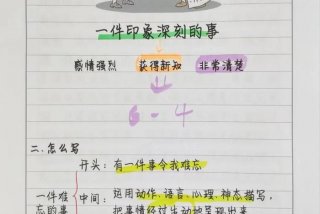 一件印象深刻的事
感情强烈 获得新知 非常清楚
6-4
二.怎么写
开头:有一件事令我难忘
一件难忘的事
中间:运用动作、语言、心理、神态描写,
把事情经过生动地呈现出来